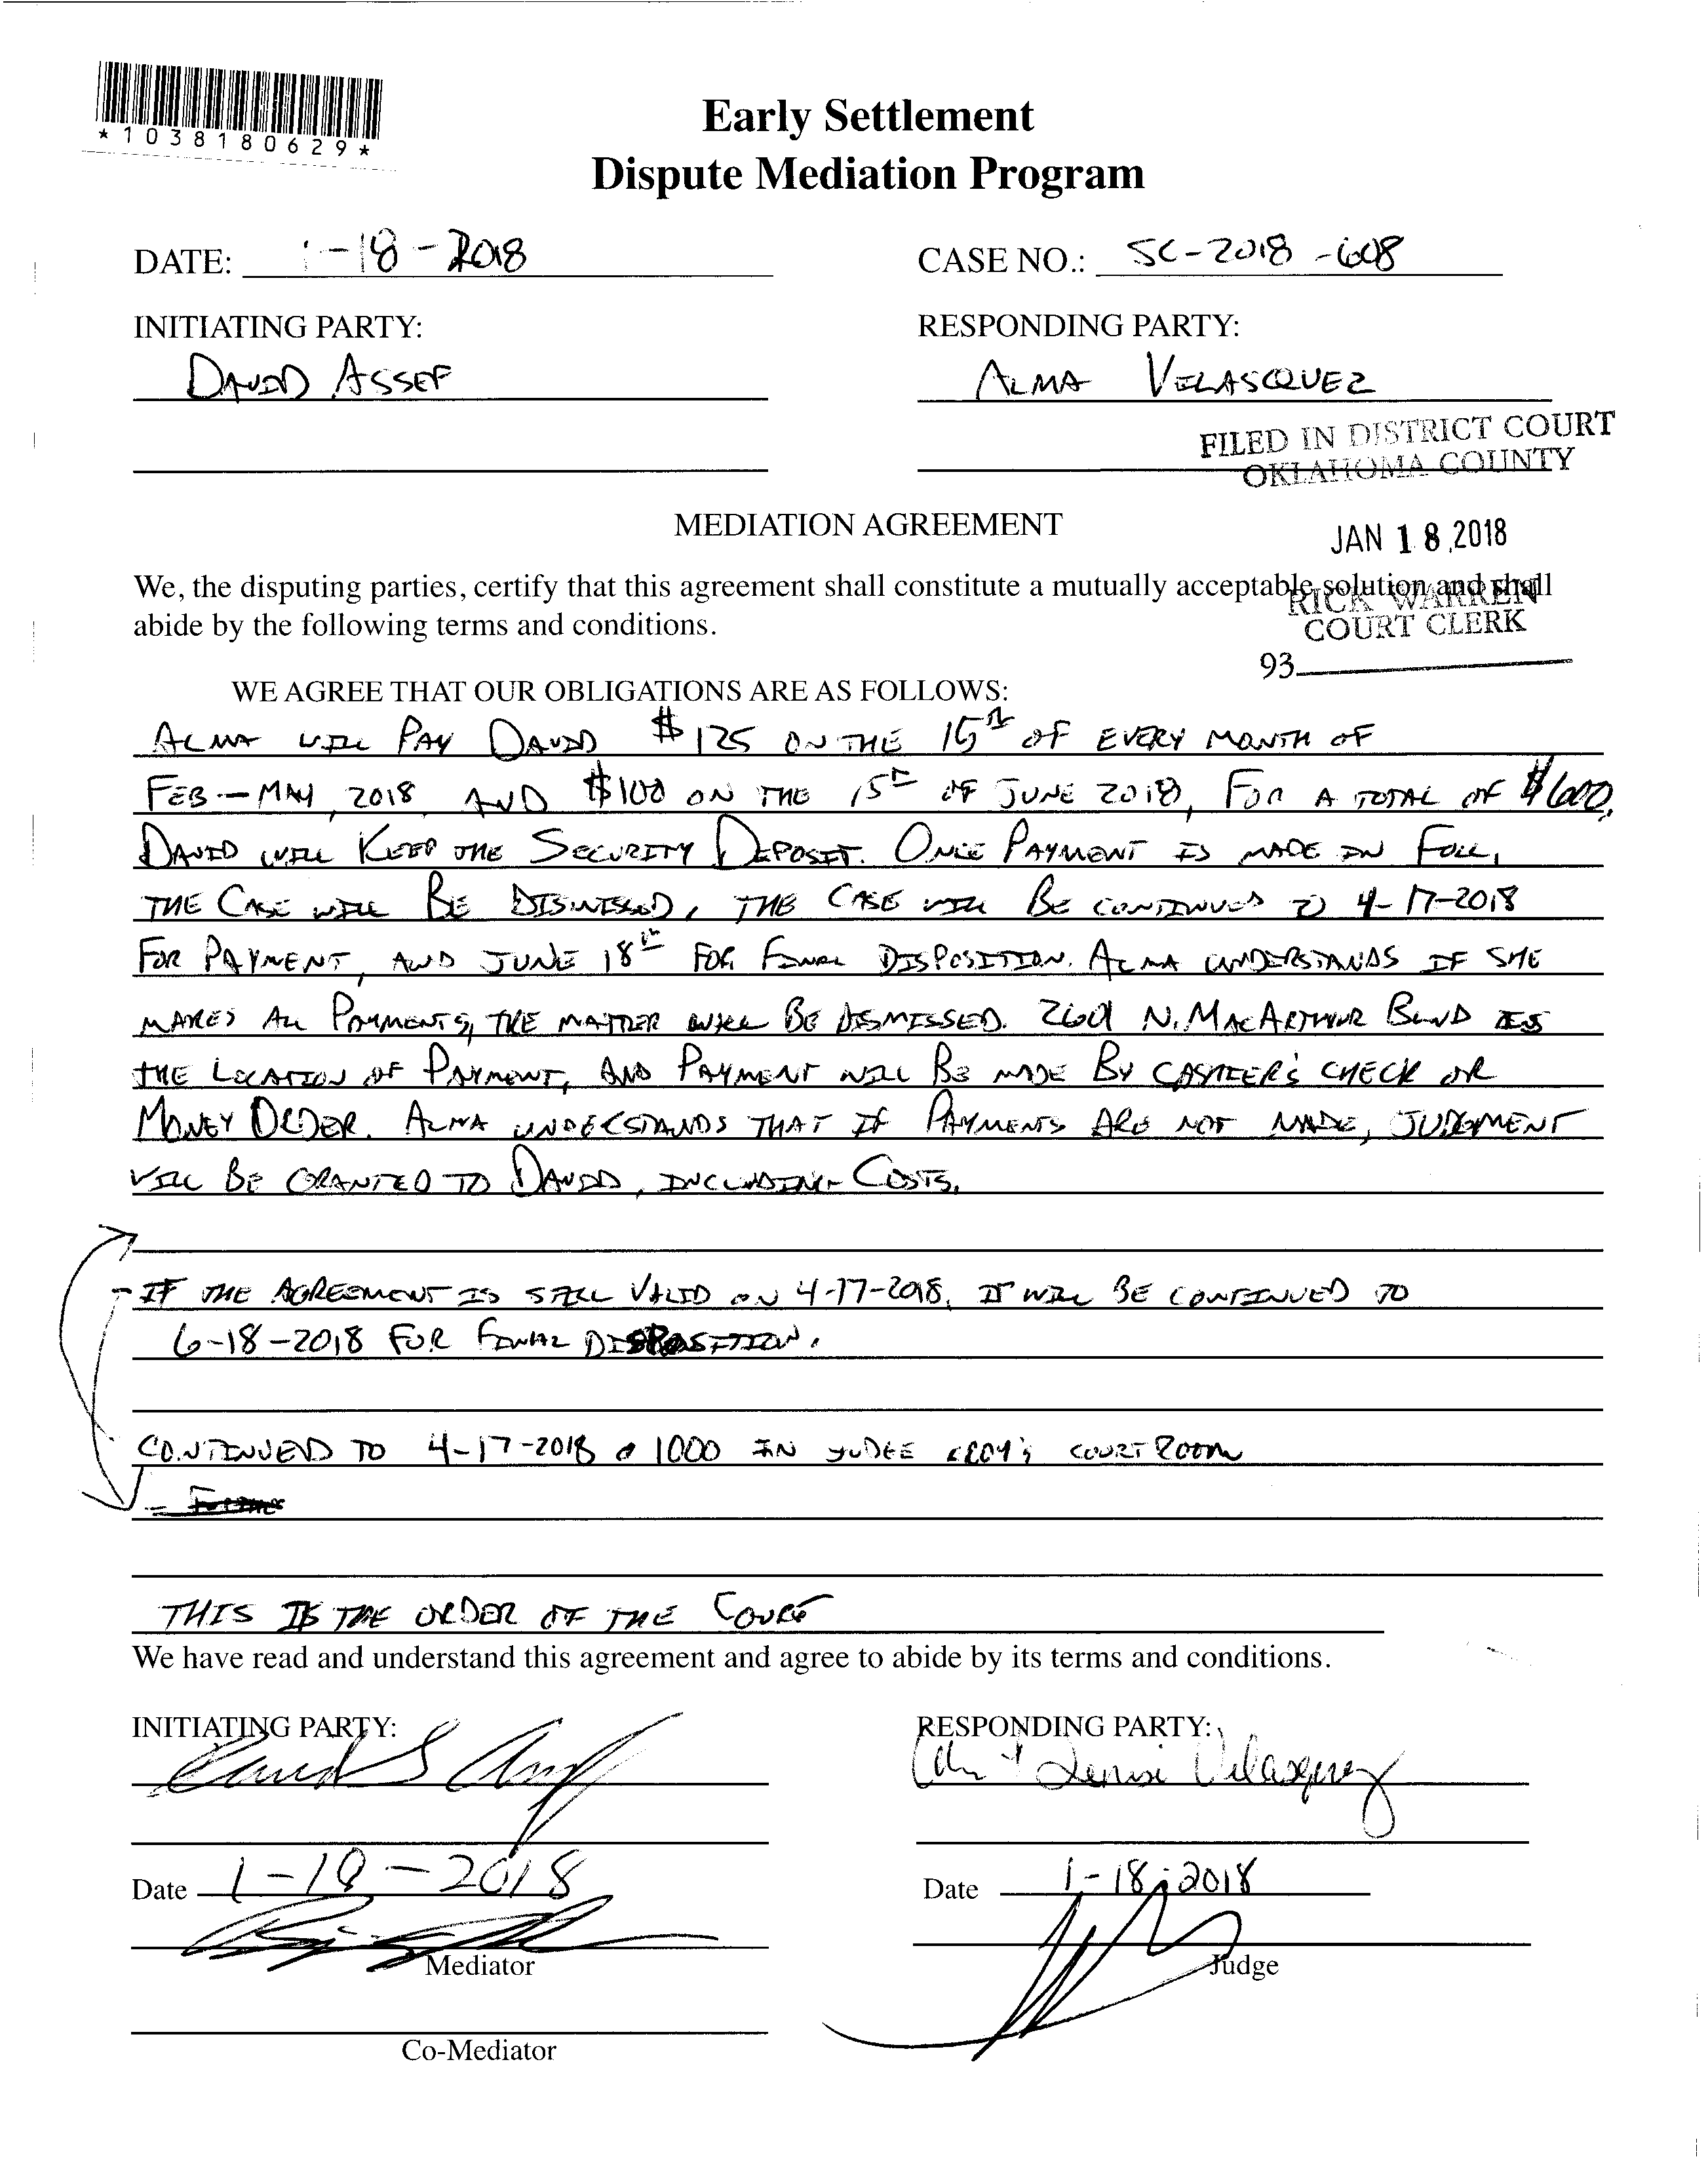 *1038180629*
Early Settlement
Dispute Mediation Program
DATE: 1-18-2018 CASE NO.: SC-2018-608
INITIATING PARTY: RESPONDING PARTY:
DAVID ASSEF ALMA VELASCQUEZ
FILED IN DISTRICT COURT
OKLAHOMA COUNTY
MEDIATION AGREEMENT
JAN 18 2018
We, the disputing parties, certify that this agreement shall constitute a mutually acceptable solution and shall
RICK WARREN
abide by the following terms and conditions.
COURT CLERK
93
WE AGREE THAT OUR OBLIGATIONS ARE AS FOLLOWS:
ALMA WILL PAY DAVID $125 ON THE 15th OF EVERY MONTH OF
FEB - MAY, 2018 AND $100 ON THE 15th OF JUNE 2018, FOR A TOTAL OF $600.
DAVID WILL KEEP THE SECURITY DEPOSIT. ONCE PAYMENT IS MADE IN FULL,
THE CASE WILL BE DISMISSED, THE CASE WILL BE CONTINUED TO 4-17-2018
FOR PAYMENT, AND JUNE 18th FOR FINAL DISPOSITION. ALMA UNDERSTANDS IF SHE
MAKES ALL PAYMENTS, THE MATTER WILL BE DISMISSED. 2601 N. MACARTHUR BLVD IS
THE LOCATION OF PAYMENT, AND PAYMENT WILL BE MADE BY CASHIER'S CHECK OR
MONEY ORDER. ALMA UNDERSTANDS THAT IF PAYMENTS ARE NOT MADE, JUDGMENT
WILL BE GRANTED TO DAVID, INCLUDING COSTS.
- IF THE AGREEMENT IS STILL VALID ON 4-17-2018, IT WILL BE CONTINUED TO
6-18-2018 FOR FINAL DISPOSITION.
CONTINUED TO 4-17-2018 @ 1000 IN JUDGE COURT ROOM
THIS IS THE ORDER OF THE COURT
We have read and understand this agreement and agree to abide by its terms and conditions.
INITIATING PARTY: RESPONDING PARTY:
David S Denise Velasquez
Date 1-18-2018 Date 1-18-2018
Mediator Judge
Co-Mediator